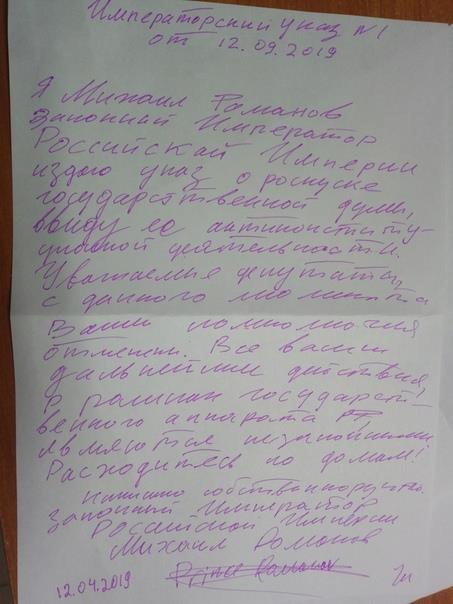 Императорский указ №1
от 12.09.2019
Я Михаил Романов
Законный Император
Российской Империи
издаю указ о роспуске
государственной думы,
ввиду ее антиконститу-
ционной деятельности.
Уважаемые депутаты,
с данного момента
Ваши полномочия
отменены. Все ваши
дальнейшии действия,
в рамках государст-
венного аппарата РФ,
являются незаконными
Расходитесь по домам!
Написано собственноручно.
законный Император
Российской Империи
Михаил Романов
Prince Romanov
12.04.2019